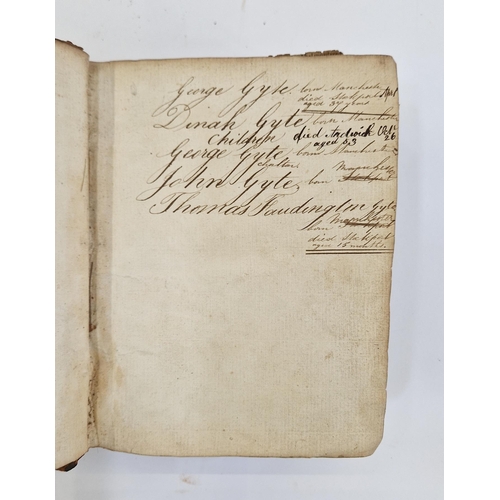 George Gyte born Manchester
died Stockport
aged 37 years
Dinah Gyte born Manchester
Children died
aged 53 26
George Gyte born Manchester
John Gyte born Manchester
Stockport
Thomas Faudington Gyte
born
Stockport
died Stockport
aged 15 months.